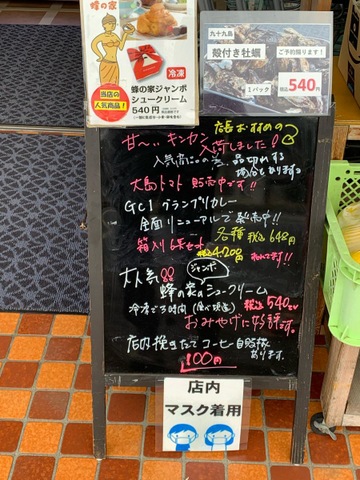 蜂の家
冷凍
当店の
人気商品！
蜂の家ジャンボ
シュークリーム
540円
九十九島
殻付き牡蠣
ご予約賜ります！
1パック
税込540円
店長おすすめの
甘〜いキンカン入荷しました！
人気店につき品切れする
場合もあります
大島トマト販売中です!!
GC1グランプリカレー
全面リニューアルで発売中!!
各種税込648円
箱入り6ヶセット
大人気
ジャンボ
蜂の家のシュークリーム
税込540円
おみやげに好評です。
店内挽きたてコーヒー自販機
あります。
100円
店内
マスク着用